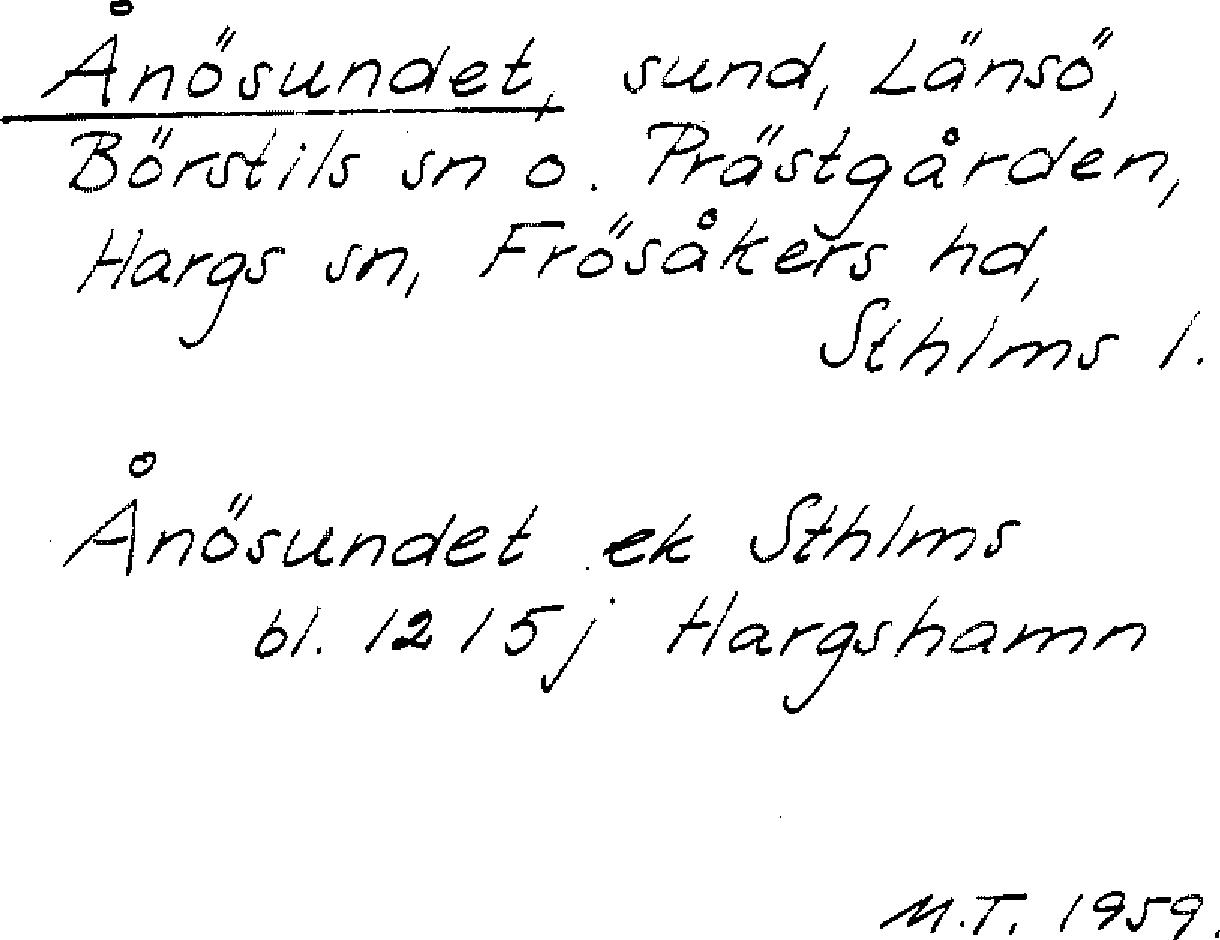 Ånösundet, sund, Länsö,
Börstils sn o. Prästgården,
Hargs sn, Frösåkers hd,
Sthlms l.
Ånösundet ek Sthlms
bl. 12 15 j Hargshamn
M.T. 1959.